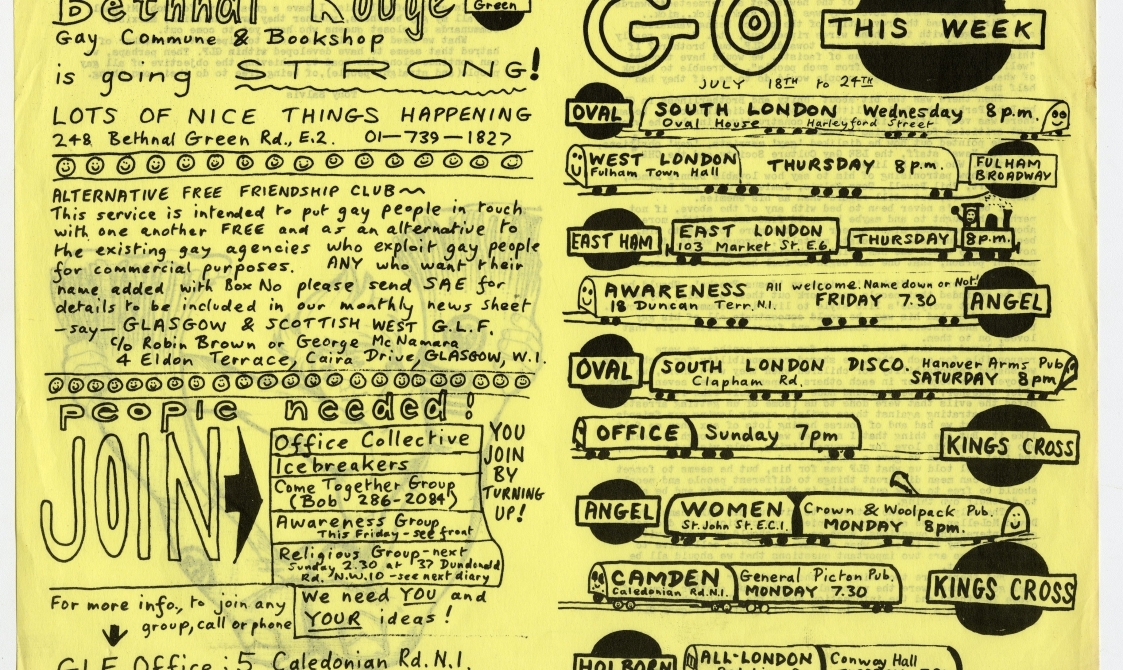 Bethnal Rouge
Green
Gay Commune & Bookshop
is going STRONG!
LOTS OF NICE THINGS HAPPENING
248 Bethnal Green Rd., E.2. 01-739-1827
ALTERNATIVE FREE FRIENDSHIP CLUB~
This service is intended to put gay people in touch
with one another FREE and as an alternative to
the existing gay agencies who exploit gay people
for commercial purposes. ANY who want their
name added with Box No please send SAE for
details to be included in our monthly news sheet
-say- GLASGOW & SCOTTISH WEST G.L.F.
c/o Robin Brown or George McNamara
4 Eldon Terrace, Caira Drive, GLASGOW, W.1.
people needed!
JOIN
Office Collective
Icebreakers
Come Together Group
(Bob 286-2084)
Awareness Group
This Friday - see front
Religious Group - next
Sunday 2.30 at 37 Dundonald
Rd. N.W.10 - see next diary
YOU
JOIN
BY
TURNING
UP!
We need YOU and
YOUR ideas!
For more info., to join any
group, call or phone
GLF Office: 5 Caledonian Rd. N.1.
GO THIS WEEK
JULY 18TH to 24TH
OVAL
SOUTH LONDON Wednesday 8 p.m.
Oval House Harleyford Street
WEST LONDON THURSDAY 8 p.m.
Fulham Town Hall
FULHAM
BROADWAY
EAST HAM
EAST LONDON
103 Market St. E.6.
THURSDAY 8 p.m.
AWARENESS All welcome. Name down or Not!
18 Duncan Terr. N.1. FRIDAY 7.30
ANGEL
OVAL
SOUTH LONDON DISCO. Hanover Arms Pub
Clapham Rd. SATURDAY 8pm
OFFICE Sunday 7pm
KINGS CROSS
ANGEL
WOMEN Crown & Woolpack Pub.
St. John St. E.C.1. MONDAY 8pm.
CAMDEN General Picton Pub.
Caledonian Rd. N.1. MONDAY 7.30
KINGS CROSS
HOLBORN
ALL-LONDON Conway Hall